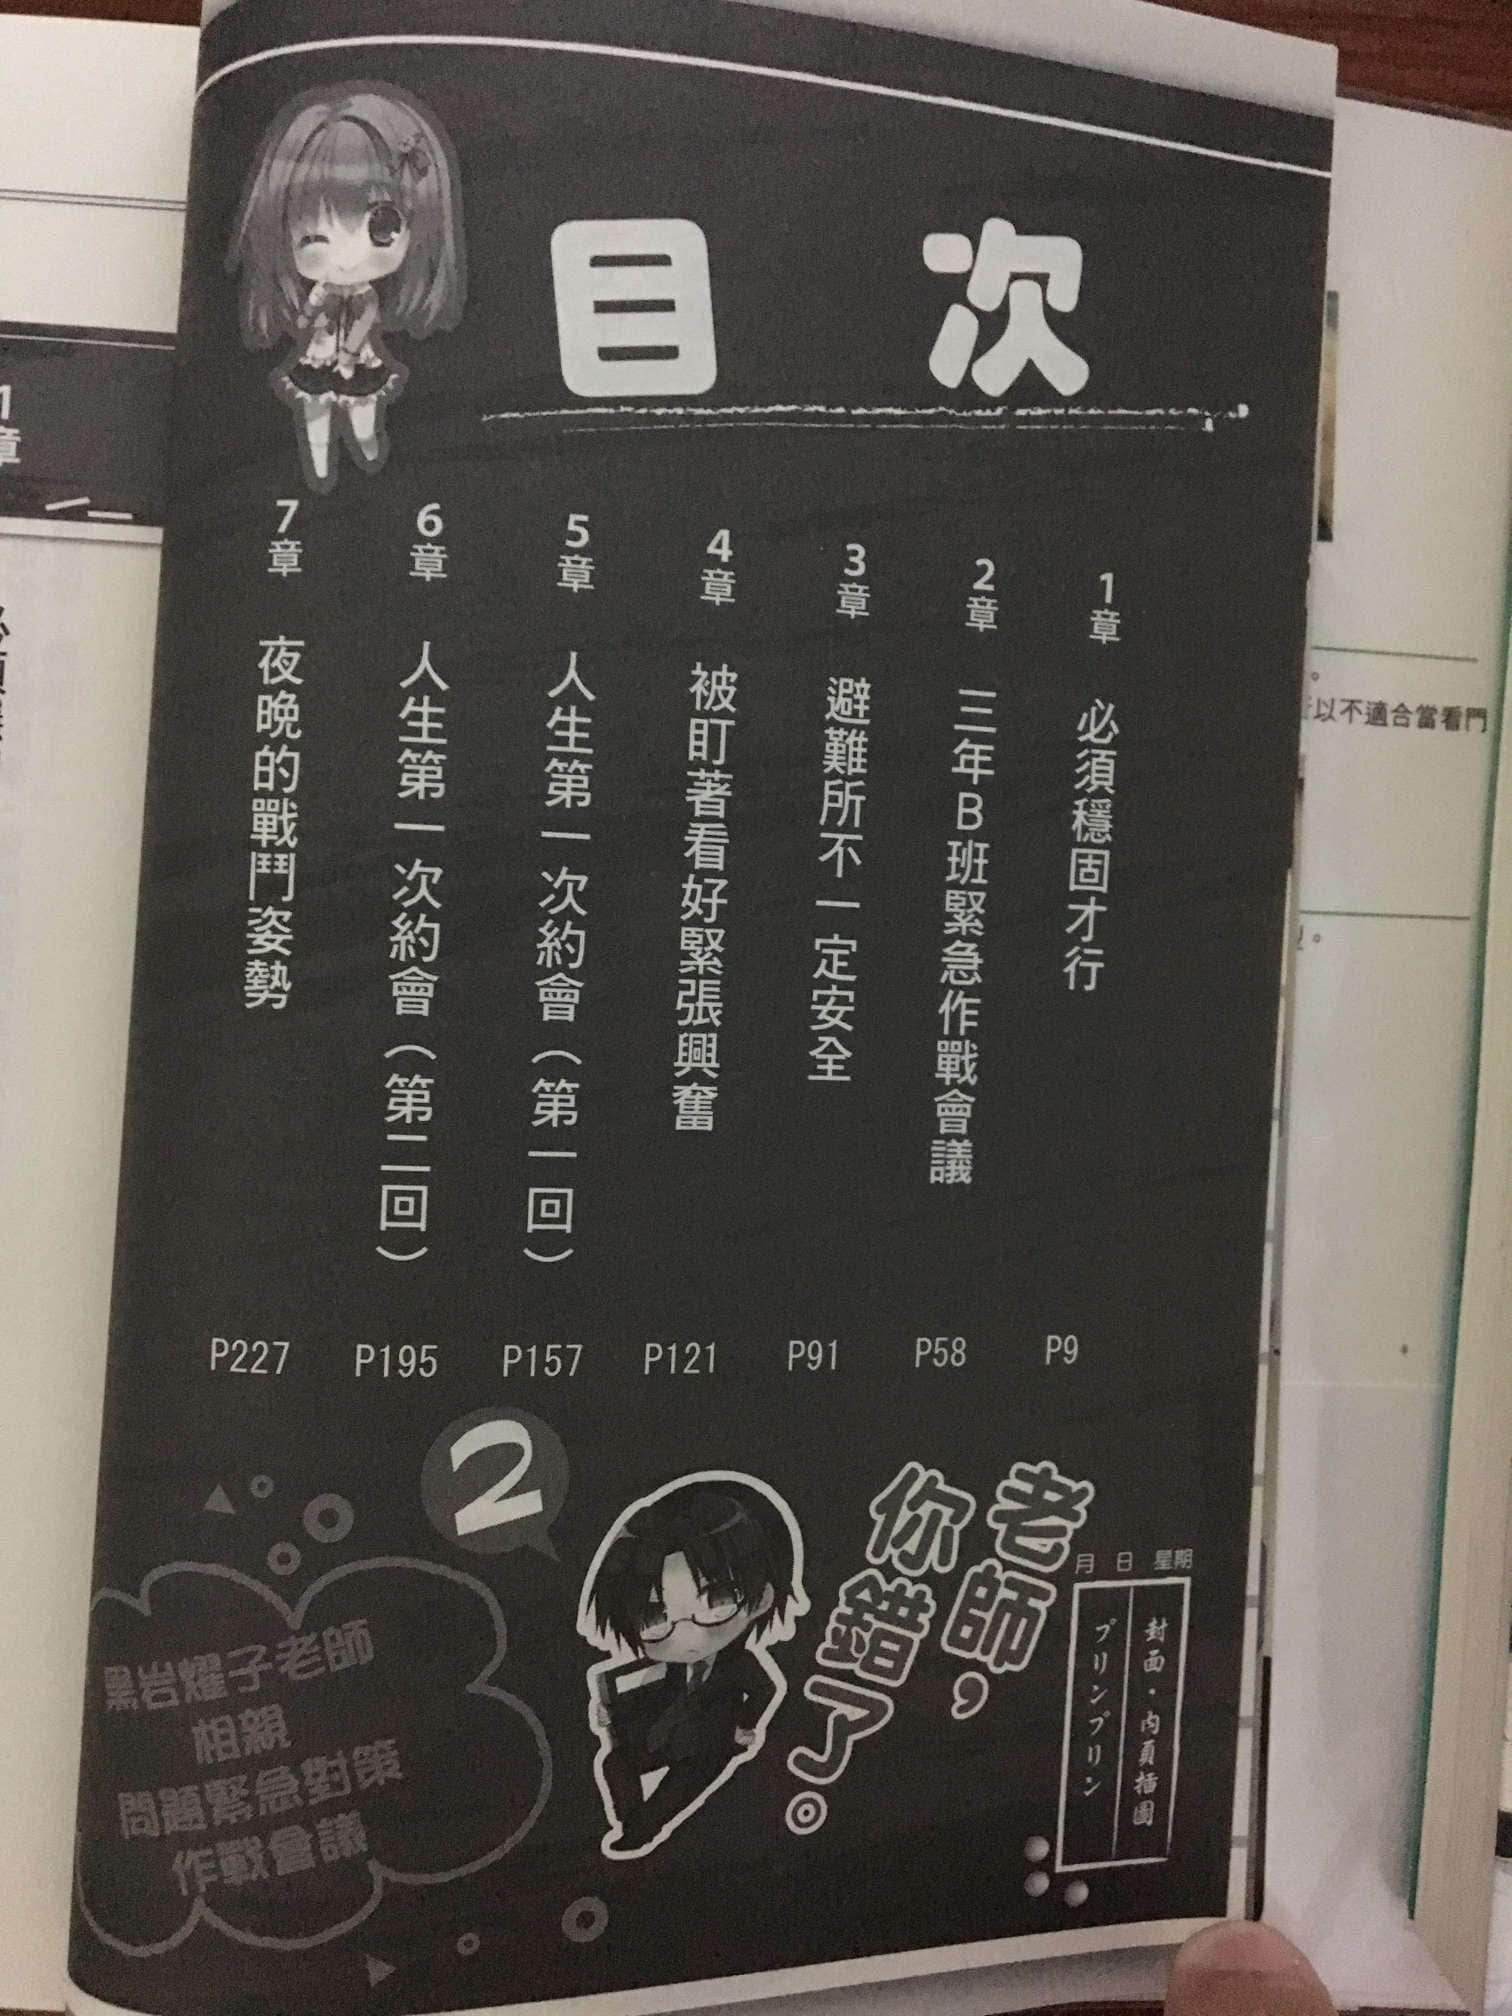 目次
1章 必須穩固才行 P9
2章 三年B班緊急作戰會議 P58
3章 避難所不一定安全 P91
4章 被盯著看好緊張興奮 P121
5章 人生第一次約會（第一回） P157
6章 人生第一次約會（第二回） P195
7章 夜晚的戰鬥姿勢 P227
月 日 星期
封面・內頁插圖
プリンプリン
老師，
你錯了。
2
黑岩燿子老師
相親
問題緊急對策
作戰會議
以不適合當看門
1章